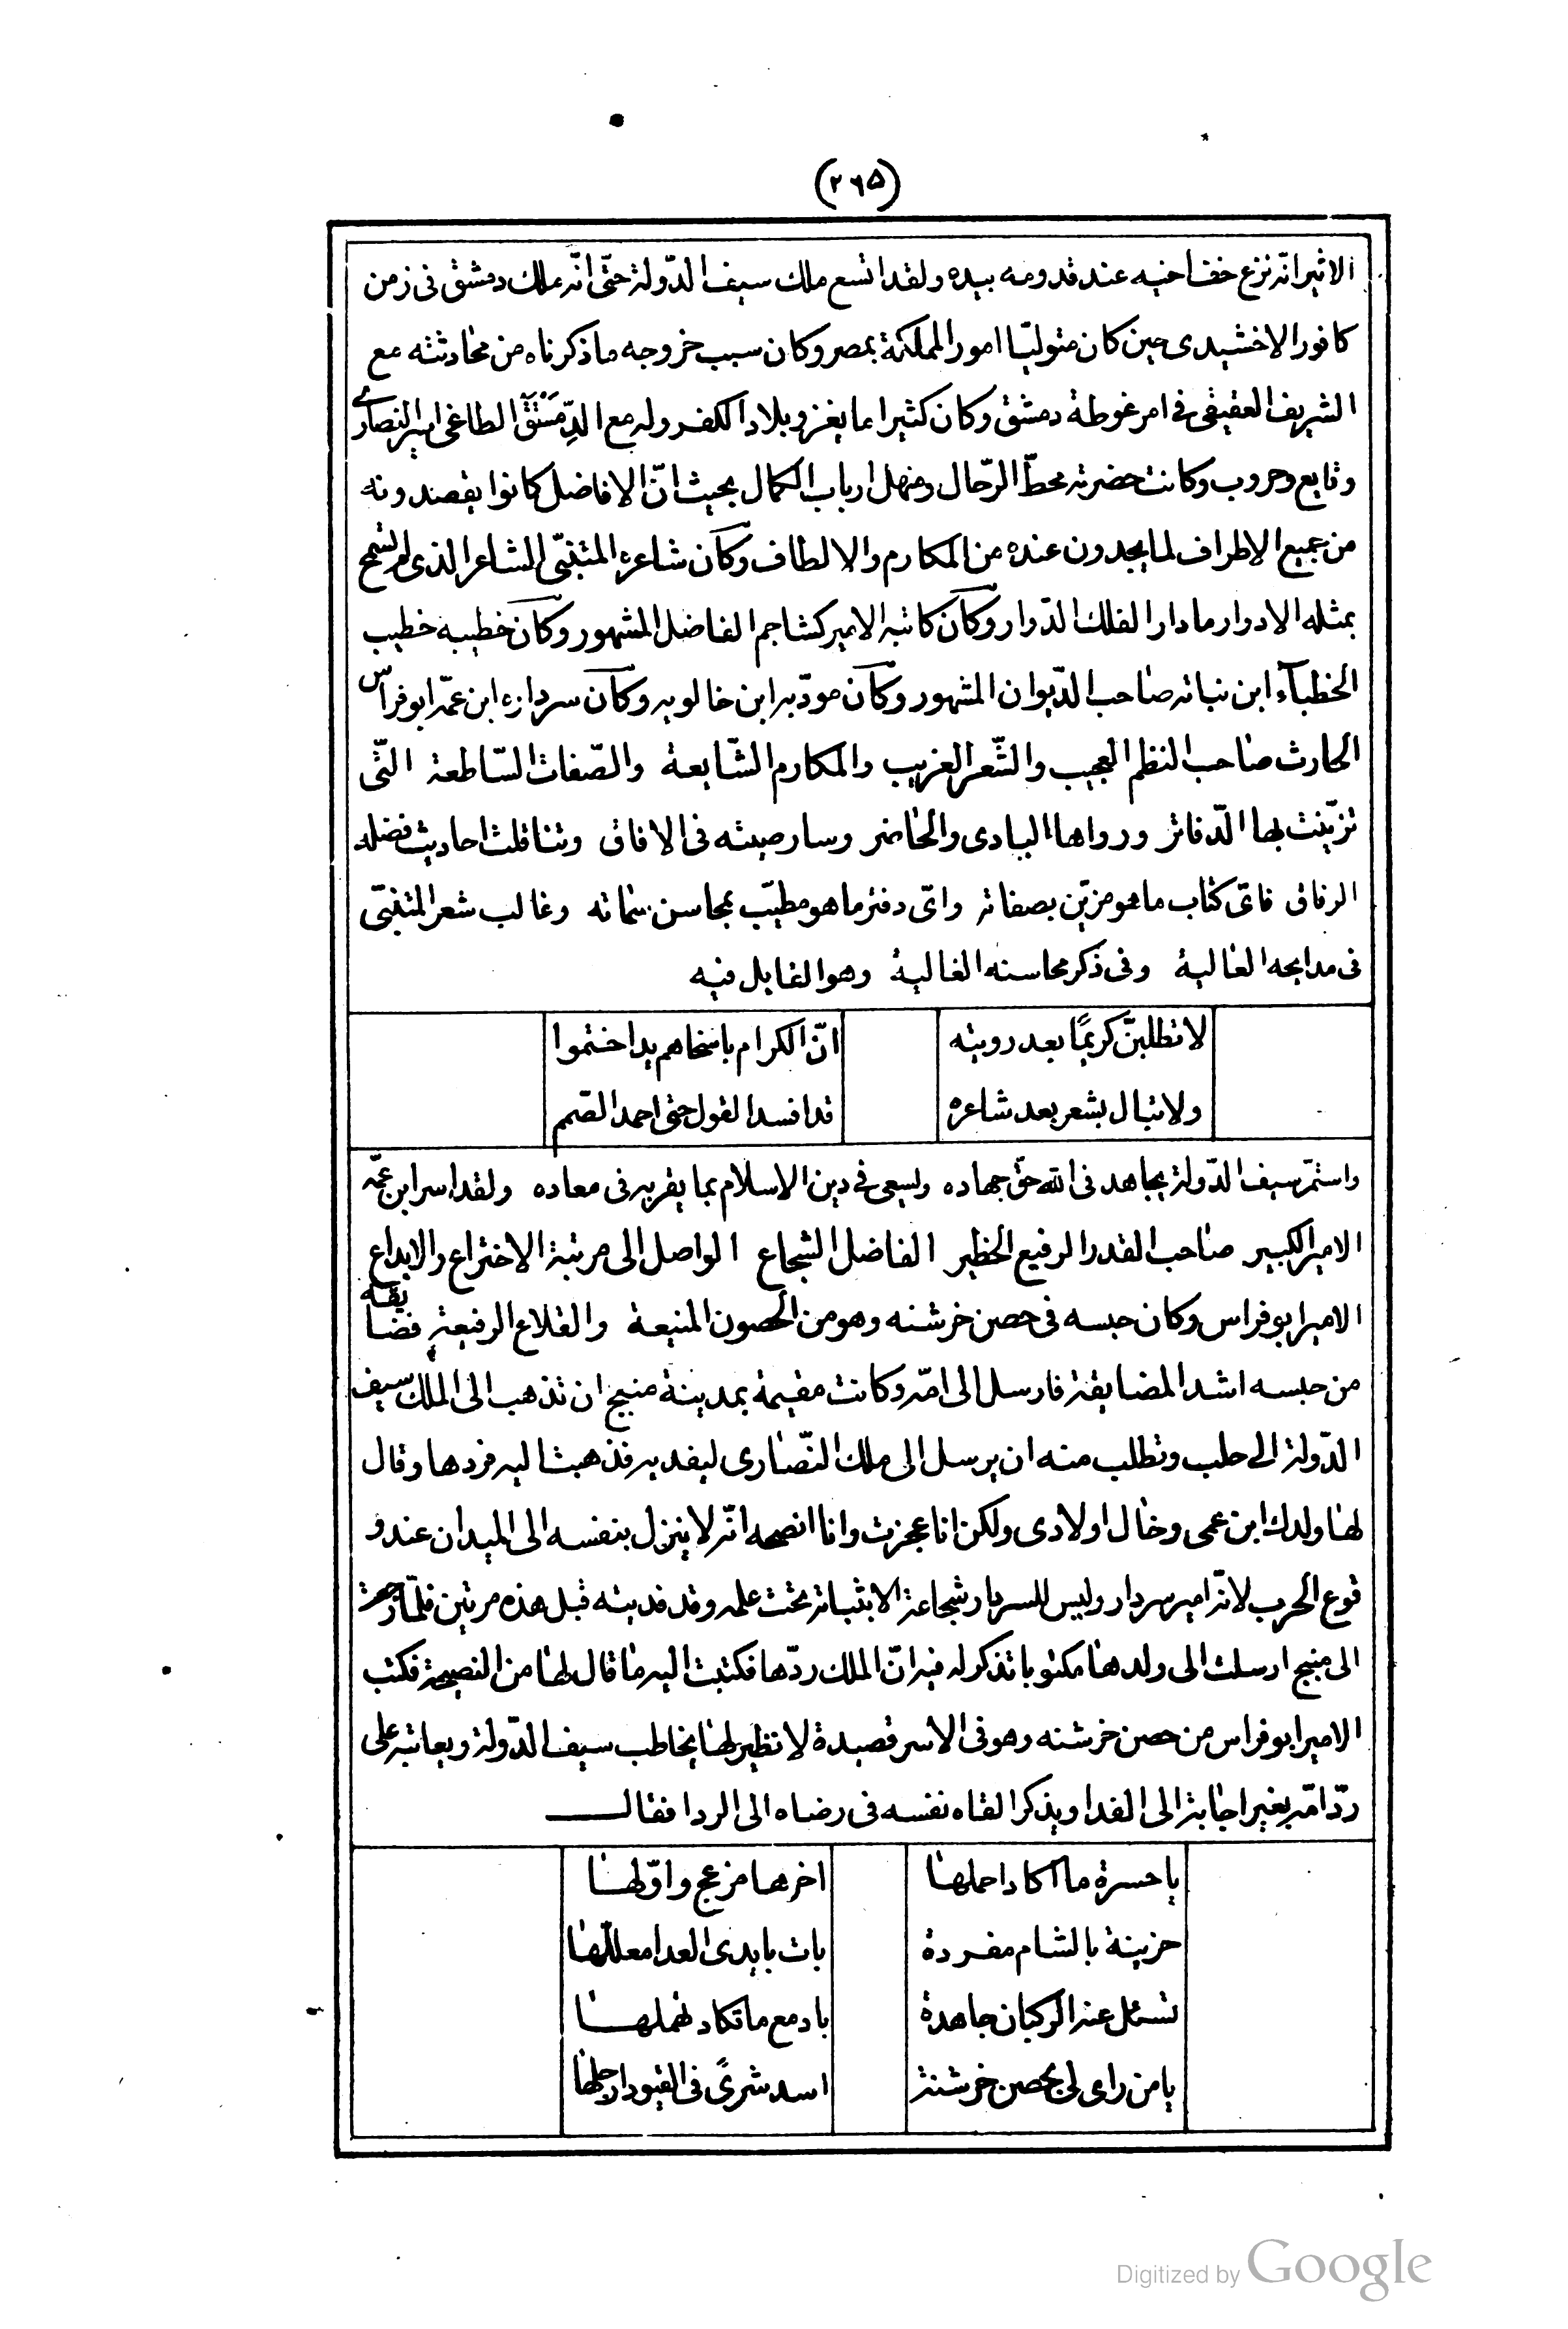 (٢٦٥)
الاثير انّه نزع خف اخيه عند قدومه بيده ولقد اتسع ملك سيف الدّولة حتّى انّه ملك دمشق فى زمن
كافور الاخشيدى حين كان متوليّا امور المملكة بمصر وكان سبب خروجه ما ذكرناه من محادثته مع
الشريف العقيقى فى امر غوطة دمشق وكان كثيرا ما يغزو بلاد الكفر وله مع الدِّمَسْتُق الطاغى اسير النصارى
وقايع وحروب وكانت حضرته محطّ الرّحال ومنهل ارباب الكمال بحيث انّ الافاضل كانوا يقصدونه
من جميع الاطراف لما يجدون عنده من المكارم والالطاف وكان شاعره المتنبّى الشاعر الذى لم تسمح
بمثله الادوار ما دار الفلك الدّوار وكان كاتبه الامير كشاجم الفاضل المشهور وكان خطيبه خطيب
الخطبآء ابن نباته صاحب الدّيوان المشهور وكان مودّبه ابن خالويه وكان سرداره ابن عمّه ابو فراس
الحارث صاحب النظم العجيب والشّعر الغريب والمكارم الشّايعة والصّفات السّاطعة التّى
تزيّنت بها الدّفاتر ورواها البادى والحاضر وسار صيته فى الافاق وتناقلت احاديث فضله
الرفاق فاىّ كتاب ما هو مزيّن بصفاته واىّ دفتر ما هو مطيّب بمحاسن سماته وغالب شعر المتنبّى
فى مدايحه الغالية وفى ذكر محاسنه الغالية وهو القايل فيه
لا تطلبنّ كريمًا بعد رويته انّ الكرام باسخاهم يدا ختموا
ولا تبال بشعر بعد شاعره قد افسد القول حتى احمد الصّمم
واستمرّ سيف الدّولة يجاهد فى الله حقّ جهاده ويسعى فى دين الاسلام بما يقربه فى معاده ولقد اسر ابن عمّه
الامير الكبير صاحب القدر الرفيع الخطير الفاضل الشجاع الواصل الى مرتبة الاختراع والابداع
الامير ابو فراس وكان حبسه فى حصن خرشنه وهو من الحصون المنيعة والقلاع الرفيعة فضايقه
من حبسه اشد المضايقة فارسل الى امّه وكانت مقيمة بمدينة منبج ان تذهب الى الملك سيف
الدّولة الى حلب وتطلب منه ان يرسل الى ملك النّصارى ليفديه فذهبت اليه فردها وقال
لها ولدك ابن عمى وخال اولادى ولكن انا عجزت وانا انصحه انّه لا ينزل بنفسه الى الميدان عند و
قوع الحرب لانّه امير سردار وليس للسردار شجاعة الا بثباته تحت علمه وقد فديته قبل هذه مرتين فلمّا رجعت
الى منبج ارسلت الى ولدها مكتوبا تذكر له فيه انّ الملك ردّها فكتبت اليه ما قال لها من النصيحة فكتب
الامير ابو فراس من حصن خرشنه وهو فى الاسر قصيدة لا نظير لها يخاطب سيف الدّولة ويعاتبه على
ردّ امّه بغير اجابة الى الفدا ويذكر القاه نفسه فى رضاه الى الردا فقال
يا حسرة ما اكاد احملها اخرها مزعج واوّلها
حزينة بالشام مفردة بات بايدى العدا معللّها
تسئل عنه الركبان جاهدة بادمع ما تكاد تمهلها
يا من راى لى بحصن خرشنة اسد شرىً فى القيود ارجلها
Digitized by Google